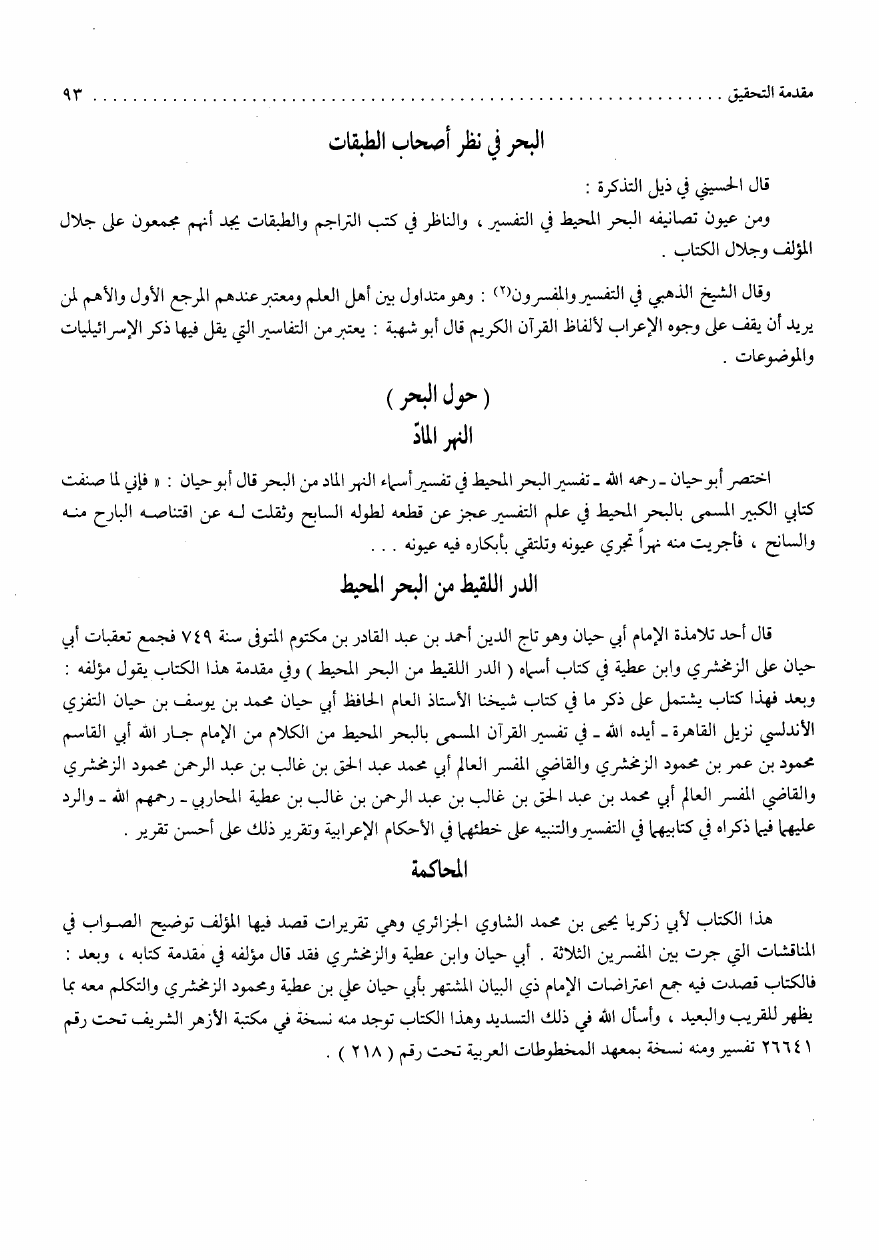 مقدمة التحقيق ............................................................... ٩٣
البحر في نظر أصحاب الطبقات
قال الحسيني في ذيل التذكرة :
ومن عيون تصانيفه البحر المحيط في التفسير ، والناظر في كتب التراجم والطبقات يجد أنهم مجمعون على جلال
المؤلف وجلال الكتاب .
وقال الشيخ الذهبي في التفسير والمفسرون(٢) : وهو متداول بين أهل العلم ومعتبر عندهم المرجع الأول والأهم لمن
يريد أن يقف على وجوه الإعراب لألفاظ القرآن الكريم قال أبو شهبة : يعتبر من التفاسير التي يقل فيها ذكر الإسرائيليات
والموضوعات .
( حول البحر )
النهر المادّ
اختصر أبو حيان ـ رحمه الله ـ تفسير البحر المحيط في تفسير أسماء النهر الماد من البحر قال أبو حيان : « فإني لما صنفت
كتابي الكبير المسمى بالبحر المحيط في علم التفسير عجز عن قطعه لطوله السابح وثقلت له عن اقتناصه البارح منه
والسانح ، فأجريت منه نهراً تجري عيونه وتلتقي بأبكاره فيه عيونه ...
الدر اللقيط من البحر المحيط
قال أحد تلامذة الإمام أبي حيان وهو تاج الدين أحمد بن عبد القادر بن مكتوم المتوفى سنة ٧٤٩ فجمع تعقبات أبي
حيان على الزمخشري وابن عطية في كتاب أسماه ( الدر اللقيط من البحر المحيط ) وفي مقدمة هذا الكتاب يقول مؤلفه :
وبعد فهذا كتاب يشتمل على ذكر ما في كتاب شيخنا الأستاذ العام الحافظ أبي حيان محمد بن يوسف بن حيان التفزي
الأندلسي نزيل القاهرة ـ أيده الله ـ في تفسير القرآن المسمى بالبحر المحيط من الكلام من الإمام جار الله أبي القاسم
محمود بن عمر بن محمود الزمخشري والقاضي المفسر العالم أبي محمد عبد الحق بن غالب بن عبد الرحمن محمود الزمخشري
والقاضي المفسر العالم أبي محمد بن عبد الحق بن غالب بن عبد الرحمن بن غالب بن عطية المحاربي ـ رحمهم الله ـ والرد
عليهما فيما ذكراه في كتابيهما في التفسير والتنبيه على خطئهما في الأحكام الإعرابية وتقرير ذلك على أحسن تقرير .
المحاكمة
هذا الكتاب لأبي زكريا يحيى بن محمد الشاوي الجزائري وهي تقريرات قصد فيها المؤلف توضيح الصواب في
المناقشات التي جرت بين المفسرين الثلاثة . أبي حيان وابن عطية والزمخشري فقد قال مؤلفه في مقدمة كتابه ، وبعد :
فالكتاب قصدت فيه جمع اعتراضات الإمام ذي البيان المشتهر بأبي حيان علي بن عطية ومحمود الزمخشري والتكلم معه بما
يظهر للقريب والبعيد ، وأسأل الله في ذلك التسديد وهذا الكتاب توجد منه نسخة في مكتبة الأزهر الشريف تحت رقم
٢٦٦٤١ تفسير ومنه نسخة بمعهد المخطوطات العربية تحت رقم ( ٢١٨ ) .